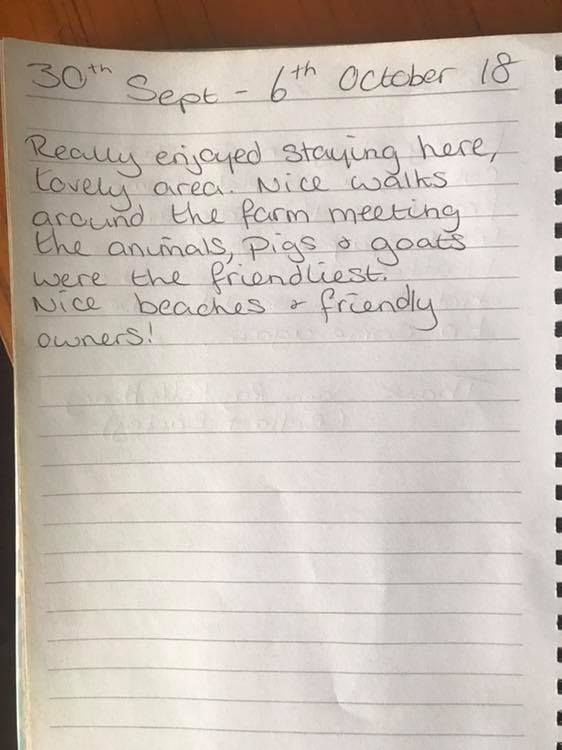 30th Sept - 6th October 18
Really enjoyed staying here,
lovely area. Nice walks
around the farm meeting
the animals, pigs & goats
were the friendliest.
Nice beaches & friendly
owners!